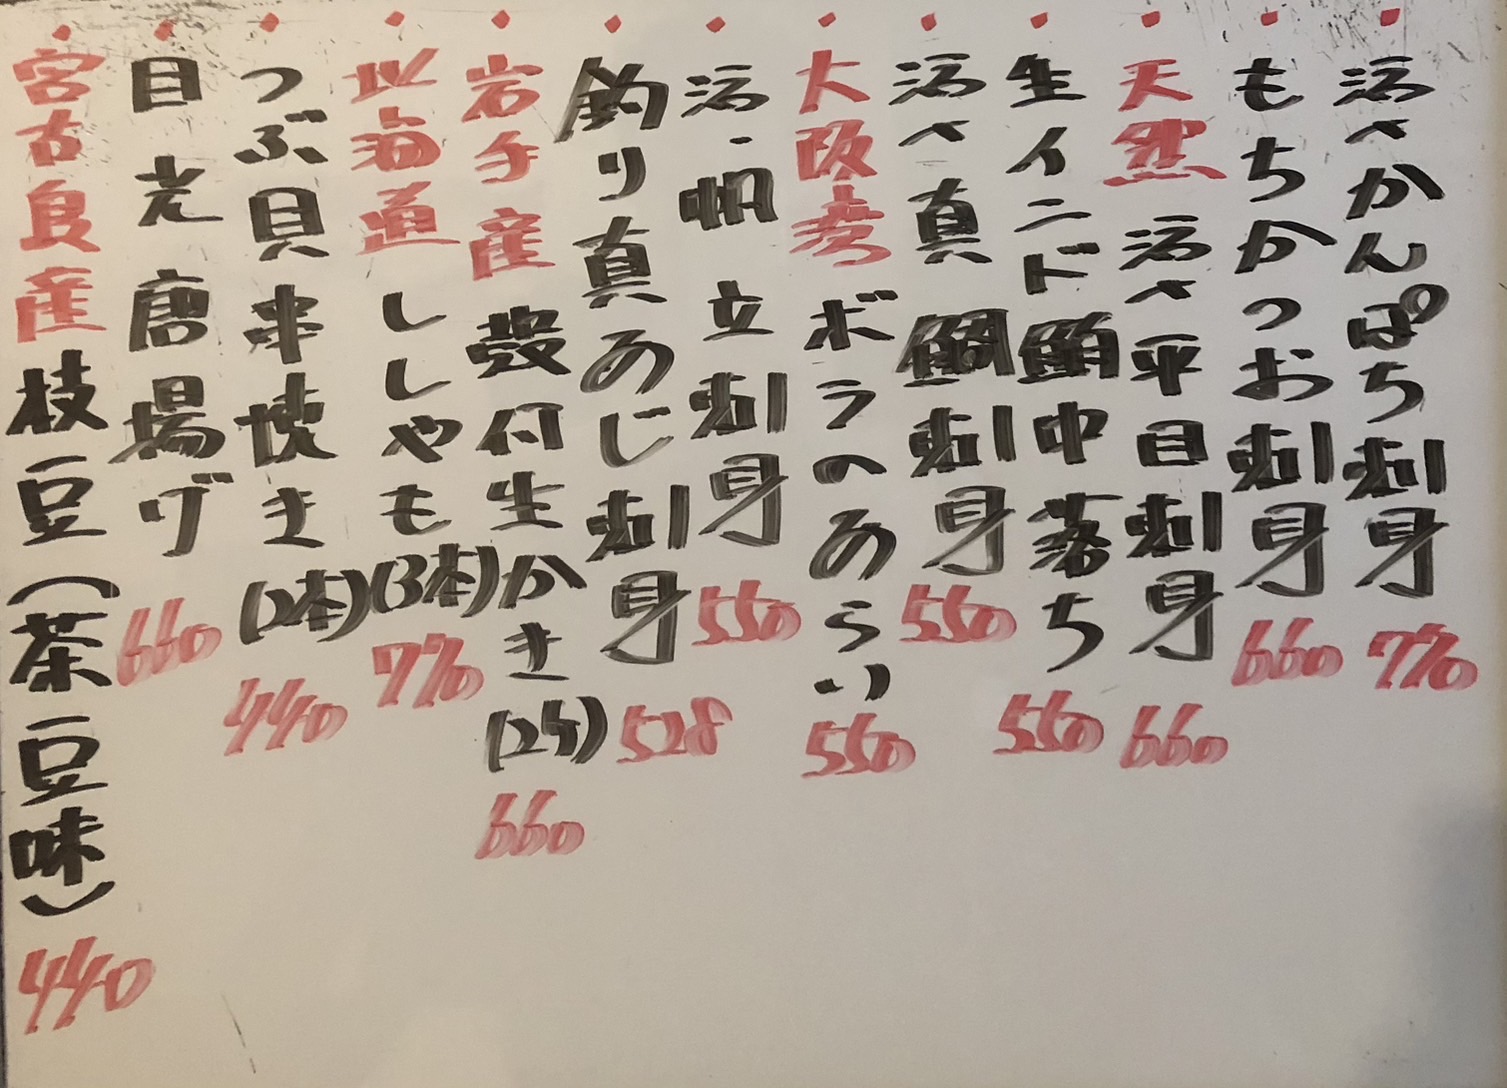 活〆かんぱち刺身 770
もちかつお刺身 660
天然 活〆平目刺身 660
生インド鮪中落ち 550
活〆真鯛刺身 550
大阪湾 ボラのあらい 550
活・帆立刺身 550
釣り真あじ刺身 528
岩手産 殻付生かき(2ケ) 660
北海道 ししゃも(3本) 770
つぶ貝串焼き(2本) 440
目光唐揚げ 660
宮古良産枝豆(茶豆味) 440